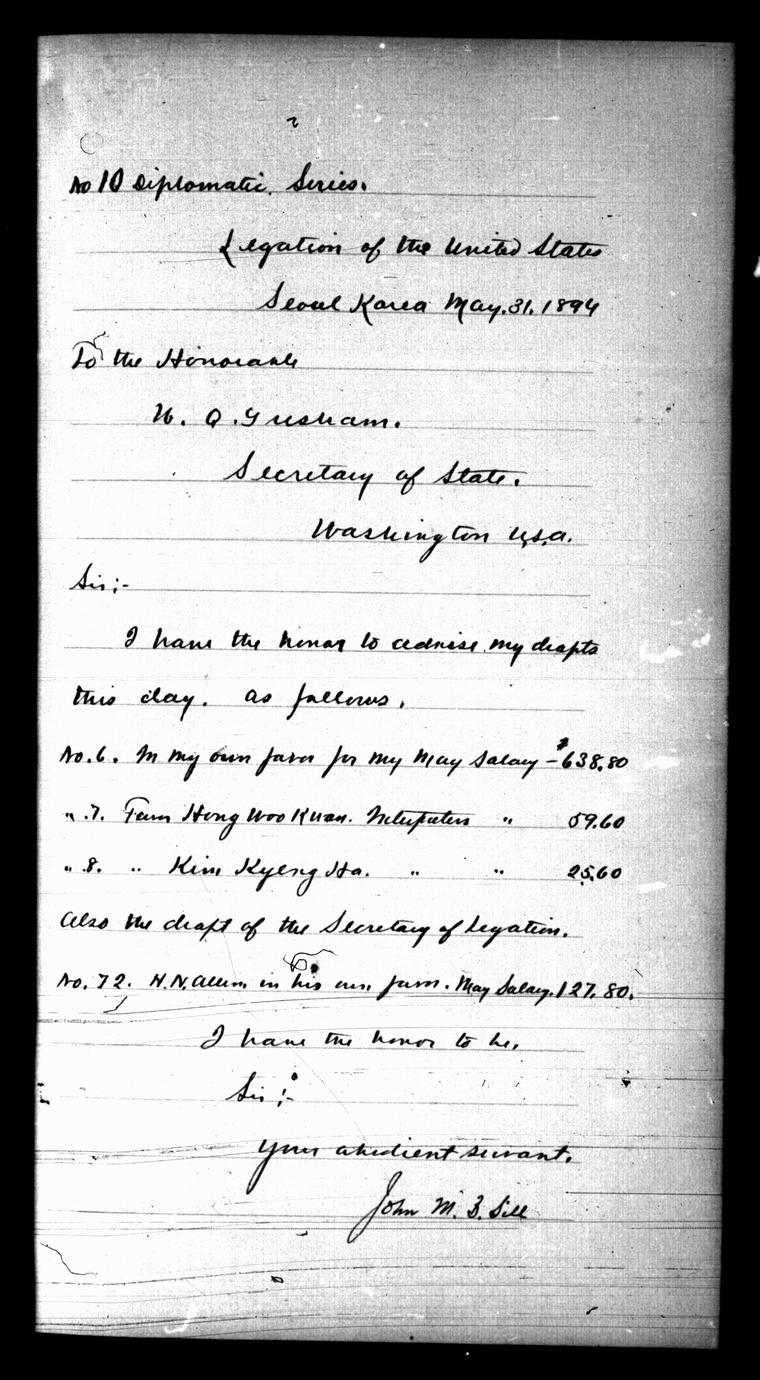 No 10 Diplomatic Series.
Legation of the United States
Seoul Korea May. 31. 1894
To the Honorable
W. Q. Gresham.
Secretary of State.
Washington U.S.A.
Sir;-
I have the honor to advise my drafts
this day. as follows.
No. 6. In my own favor for my May Salary - $638.80
" .7. Favor Hong Woo Kuan. Interpreters " 59.60
" .8. " Kim Kyeng Ha. " " 25.60
Also the draft of the Secretary of Legation.
No. 72. H.N. Allen in his own favor. May Salary. 127.80.
I have the honor to be.
Sir;-
Your obedient servant.
John M. B. Sill